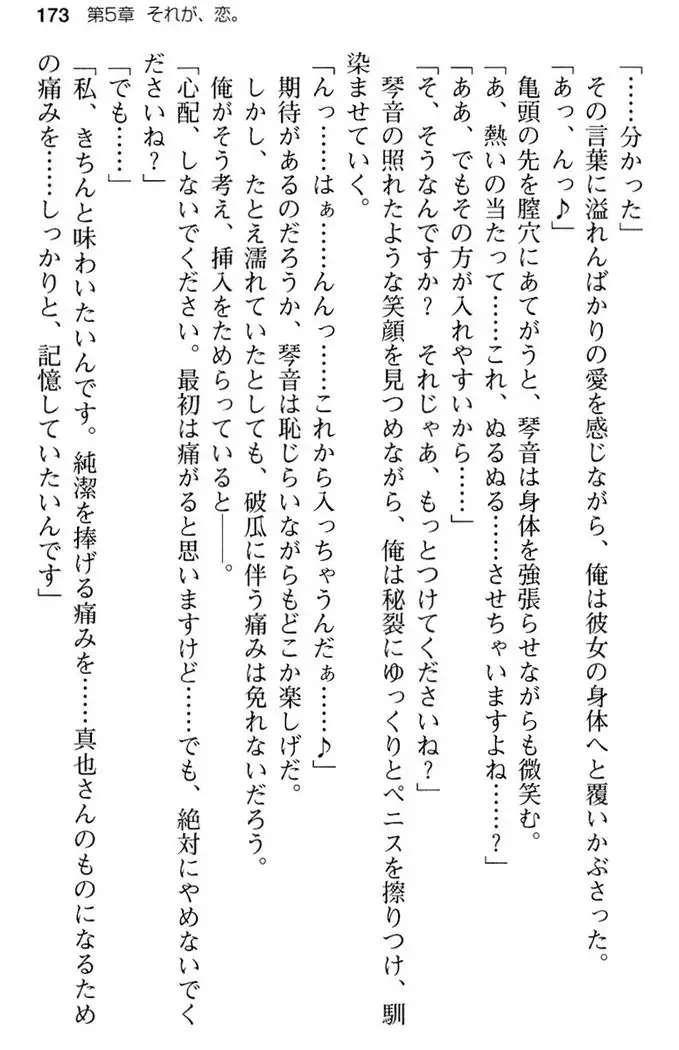 173 第5章 それが、恋。
「……分かった」
その言葉に溢れんばかりの愛を感じながら、俺は彼女の身体へと覆いかぶさった。
「あっ、んっ♪」
亀頭の先を膣穴にあてがうと、琴音は身体を強張らせながらも微笑む。
「あ、熱いの当たって……これ、ぬるぬる……させちゃいますよね……？」
「ああ、でもその方が入れやすいから……」
「そ、そうなんですか？　それじゃあ、もっとつけてくださいね？」
琴音の照れたような笑顔を見つめながら、俺は秘裂にゆっくりとペニスを擦りつけ、馴
染ませていく。
「んっ……はぁ……んんっ……これから入っちゃうんだぁ……♪」
期待があるのだろうか、琴音は恥じらいながらもどこか楽しげだ。
しかし、たとえ濡れていたとしても、破瓜に伴う痛みは免れないだろう。
俺がそう考え、挿入をためらっていると――。
「心配、しないでください。最初は痛がると思いますけど……でも、絶対にやめないでく
ださいね？」
「でも……」
「私、きちんと味わいたいんです。純潔を捧げる痛みを……真也さんのものになるため
の痛みを……しっかりと、記憶していたいんです」